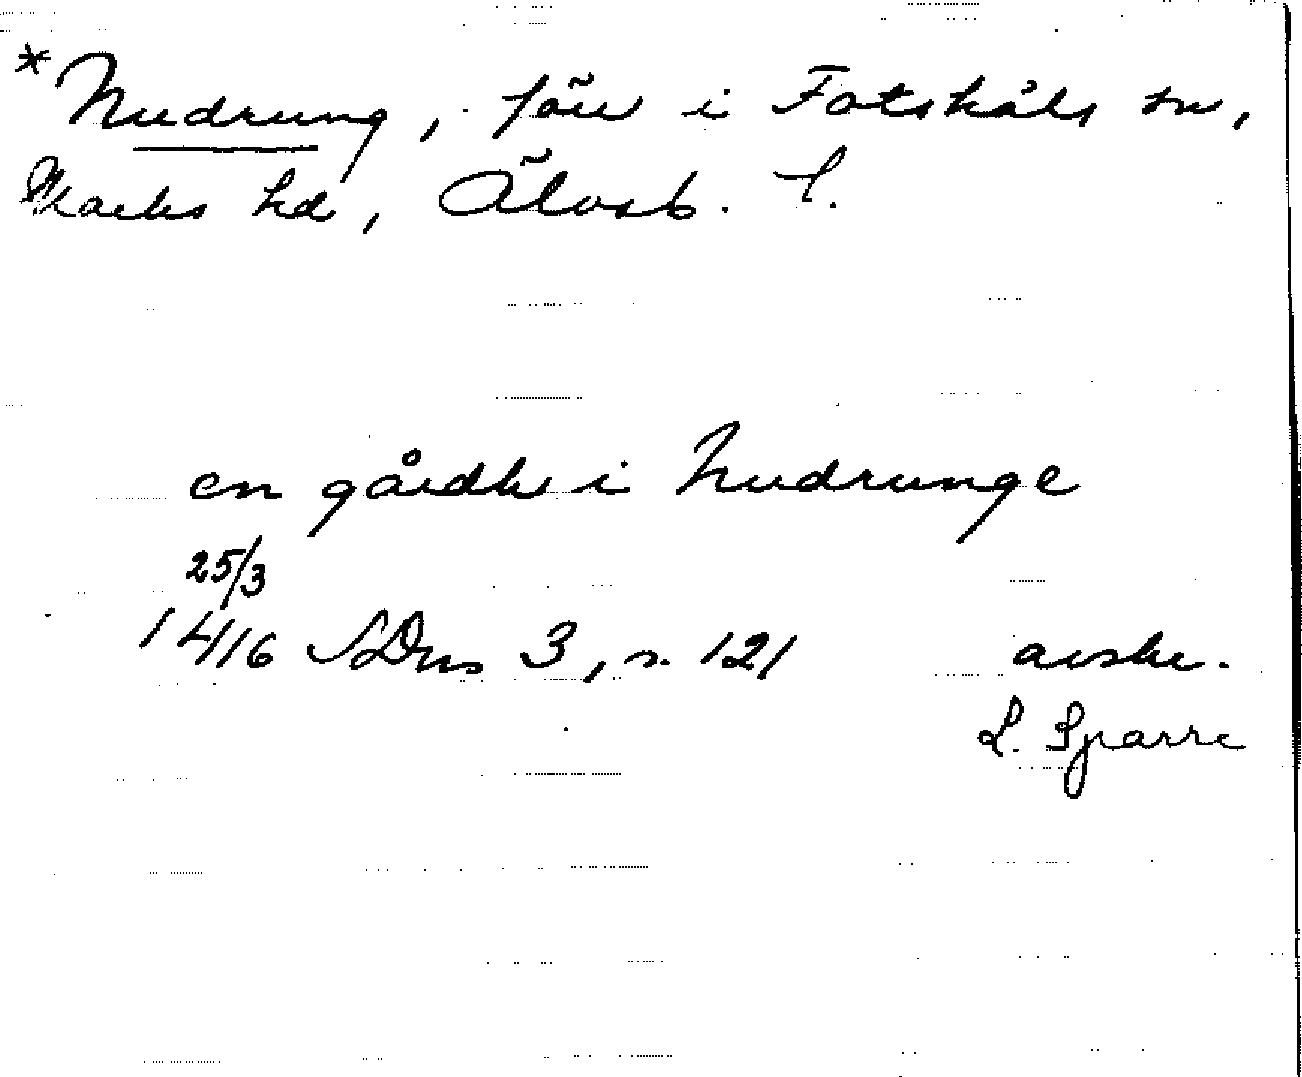 *Nudrung, förr i Fotskäls sn,
Marks hd, Älvsb. l.
en gårdh i Nudrunge
25/3
1416 SDns 3, s. 121 avskr.
L. Sparre